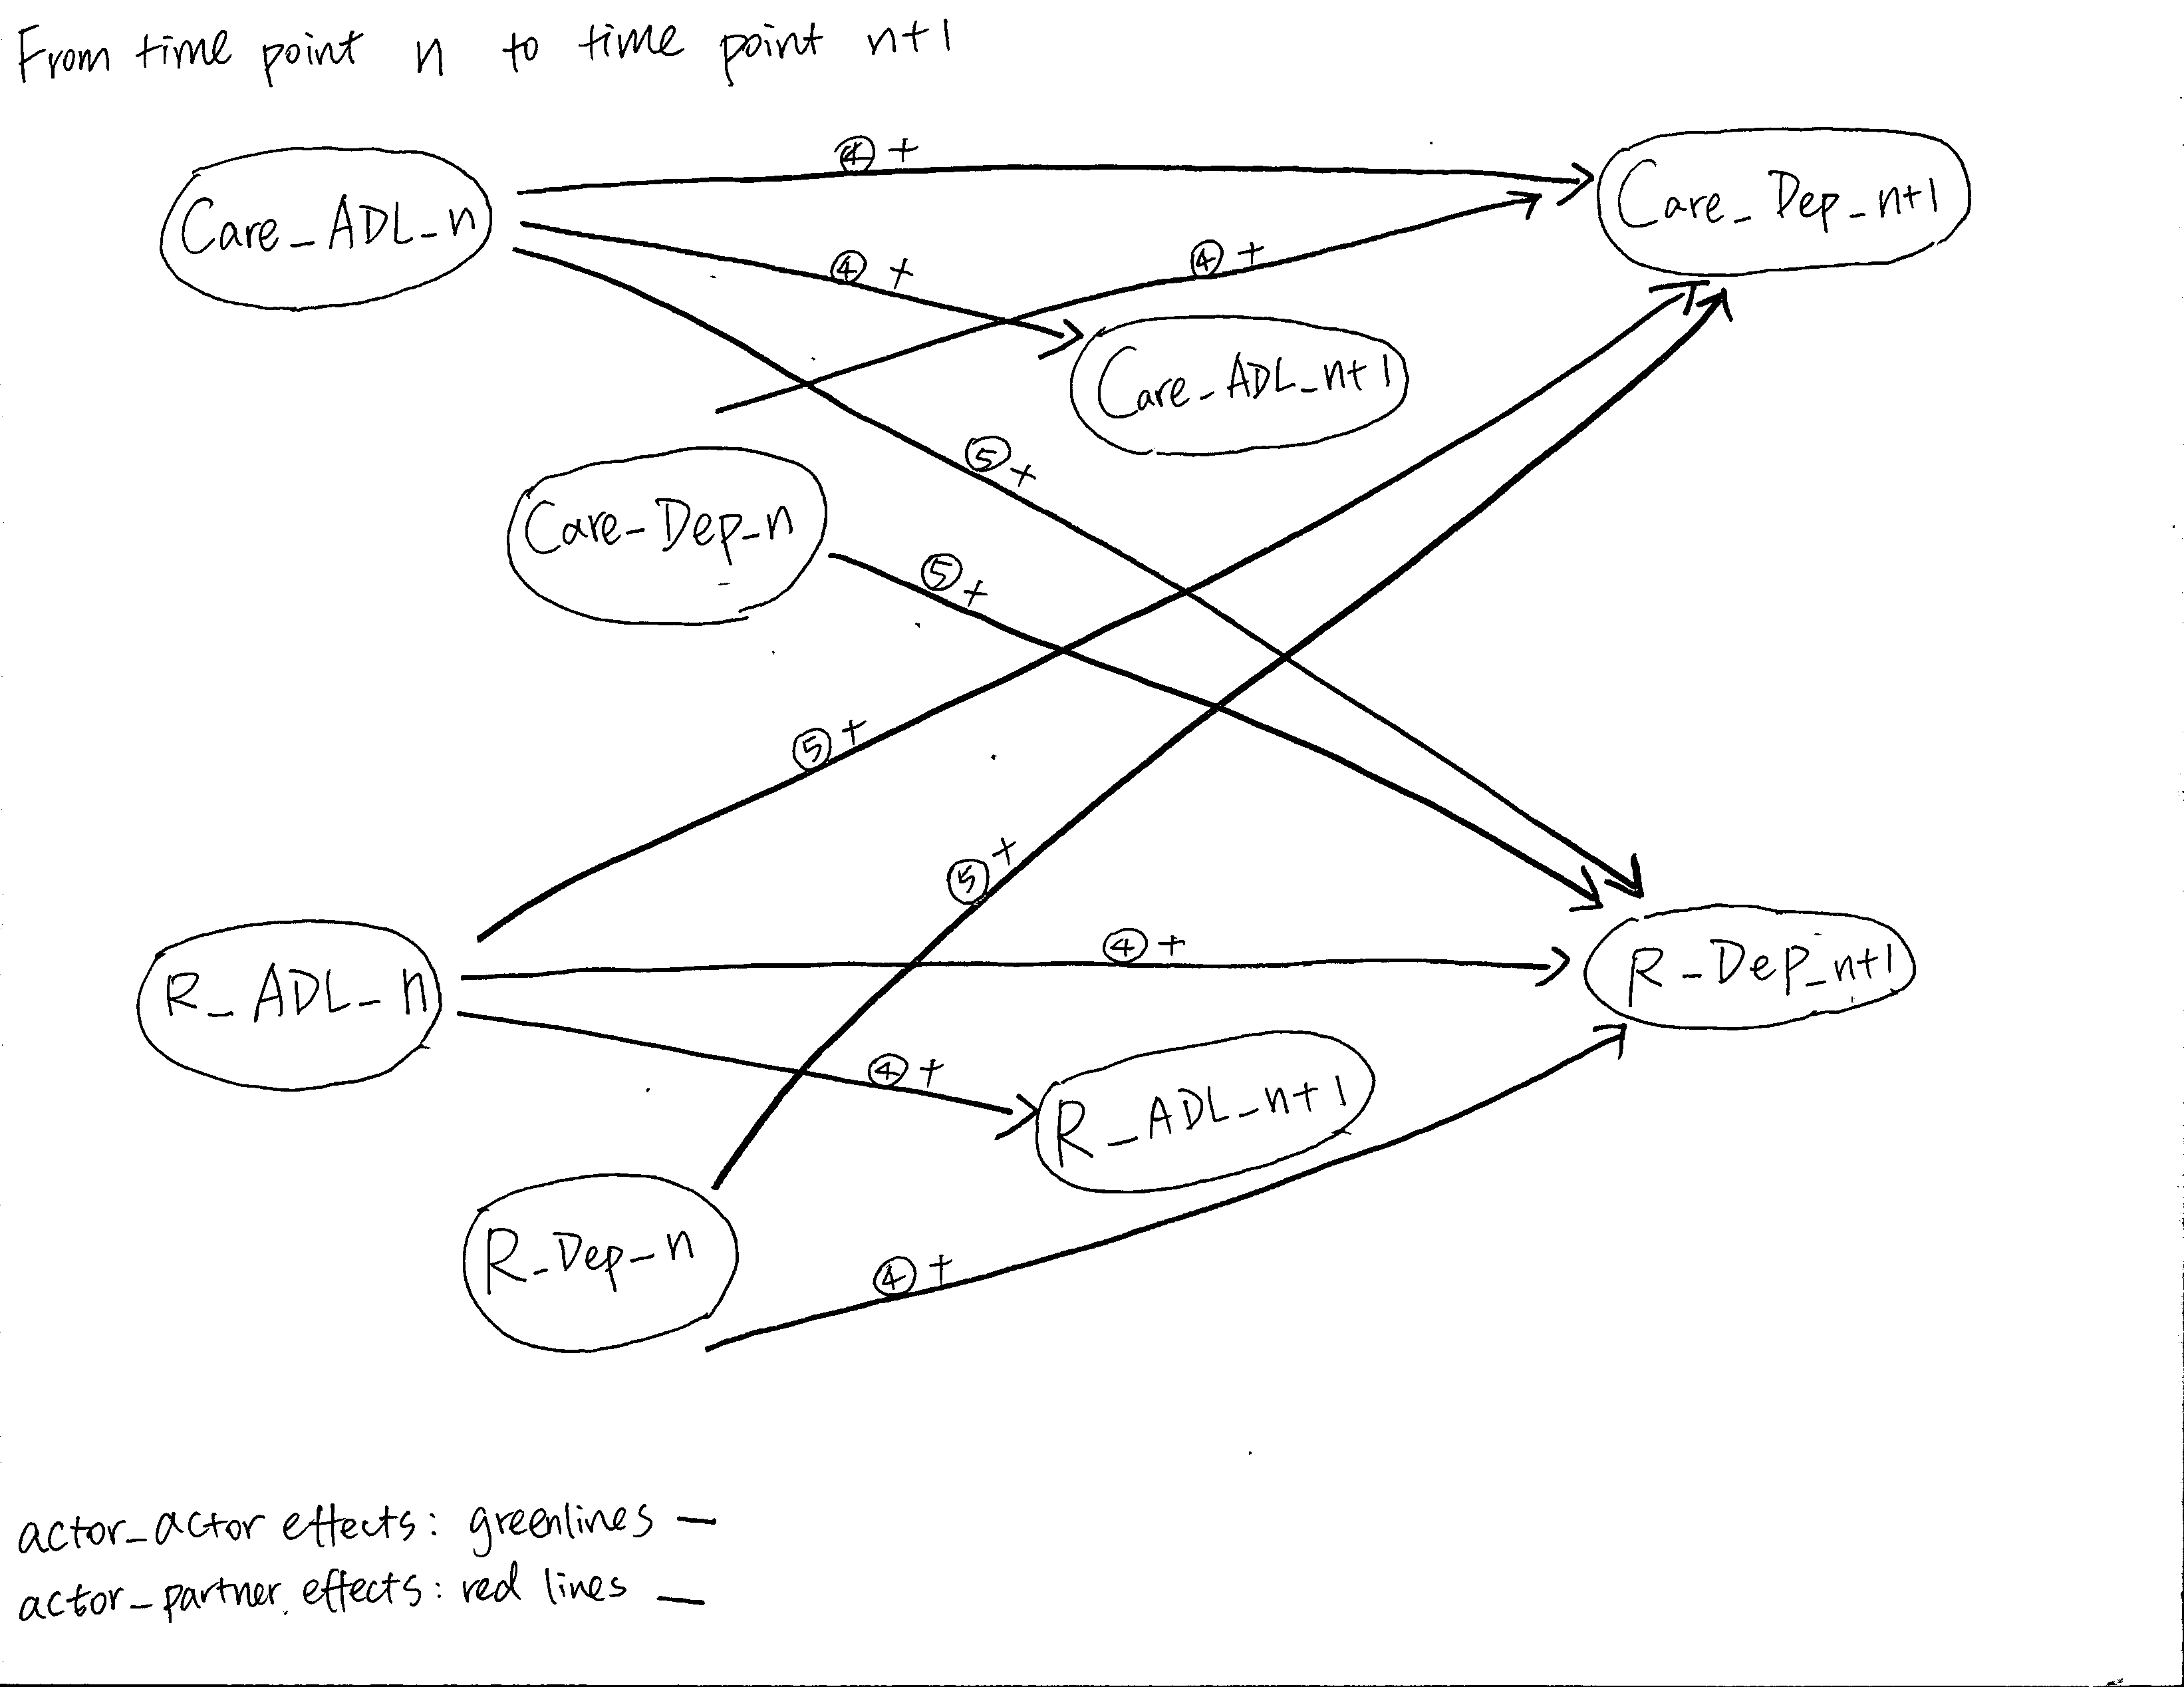 From time point n to time point n+1
④ +
Care_Dep_n+1
Care_ADL_n
④ +
④ +
Care_ADL_n+1
⑤ +
Care_Dep_n
⑤ +
⑤ +
⑤ +
④ +
R_ADL_n
R_Dep_n+1
④ +
R_ADL_n+1
R_Dep_n
④ +
actor_actor effects: greenlines —
actor_partner effects: red lines —